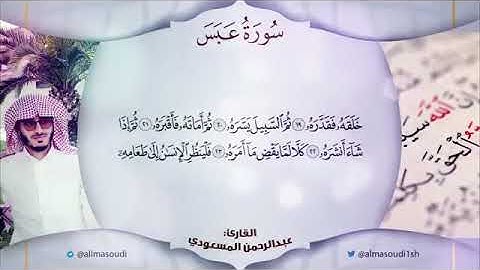 سُورَةُ عَبَسَ
خَلَقَهُۥ فَقَدَّرَهُۥ ١٩ ثُمَّ ٱلسَّبِيلَ يَسَّرَهُۥ ٢٠ ثُمَّ أَمَاتَهُۥ فَأَقۡبَرَهُۥ ٢١ ثُمَّ إِذَا
شَآءَ أَنشَرَهُۥ ٢٢ كَلَّا لَمَّا يَقۡضِ مَآ أَمَرَهُۥ ٢٣ فَلۡيَنظُرِ ٱلۡإِنسَٰنُ إِلَىٰ طَعَامِهِۦٓ
القارئ:
عبدالرحمن المسعودي
@alimasoudi
@almasoudi1sh
الله